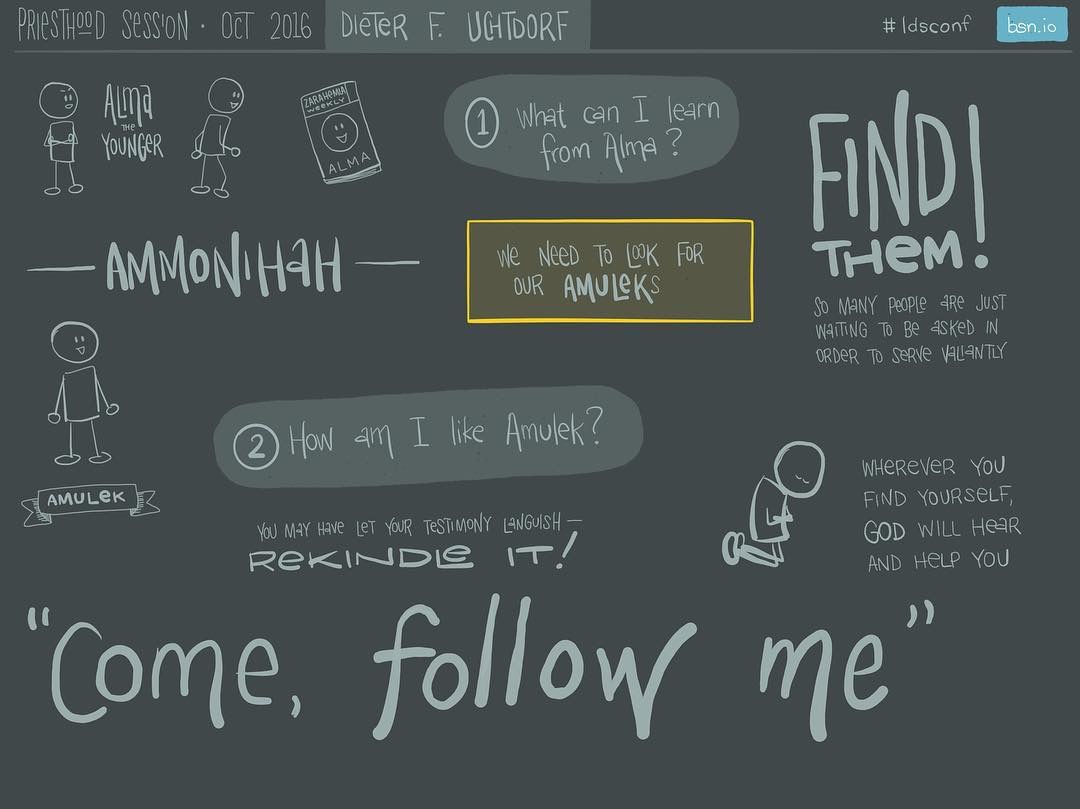 PRIESTHOOD SESSION · OCT 2016
DIETER F. UCHTDORF
#ldsconf
bsn.io
Alma
THE
YOUNGER
ZARAHEMLA
WEEKLY
ALMA
1 What can I learn
from Alma?
FIND
THEM!
SO MANY PEOPLE ARE JUST
WAITING TO BE ASKED IN
ORDER TO SERVE VALIANTLY
AMMONIHAH
WE NEED TO LOOK FOR
OUR AMULEKS
AMULEK
2 How am I like Amulek?
YOU MAY HAVE LET YOUR TESTIMONY LANGUISH —
REKINDLE IT!
WHEREVER YOU
FIND YOURSELF,
GOD WILL HEAR
AND HELP YOU
"Come, follow me"